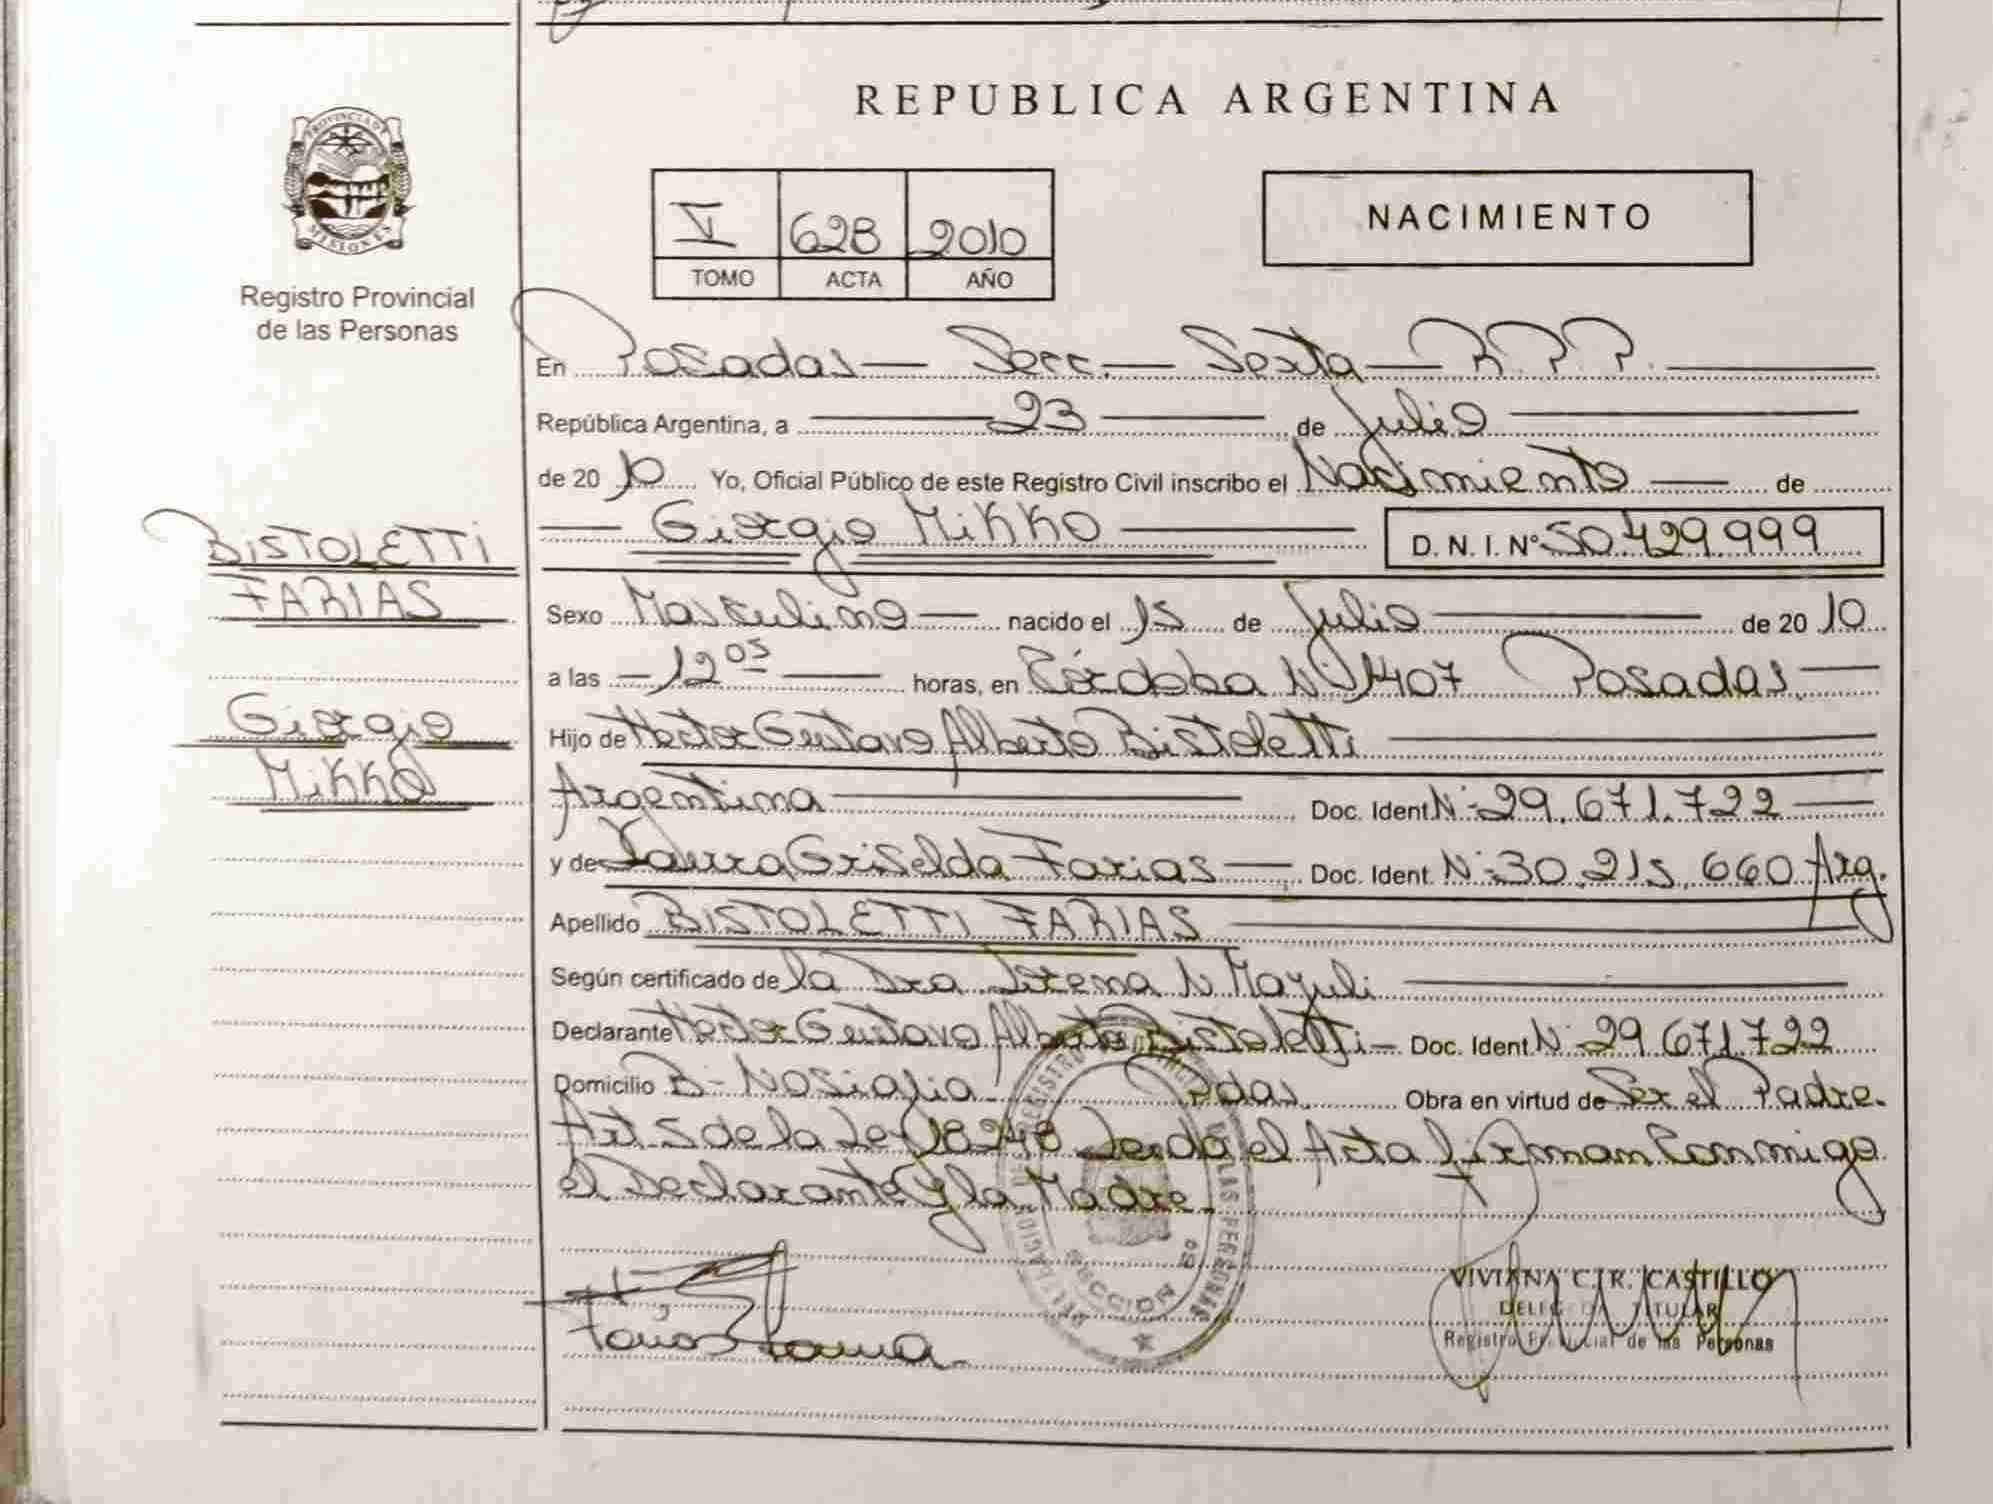 REPUBLICA ARGENTINA
PROVINCIA DE
MISIONES
Registro Provincial
de las Personas
V 628 2010
TOMO ACTA AÑO
NACIMIENTO
En Posadas — Secc. — Sexta — R.P.P.
República Argentina, a 23 de Julio
de 2010 Yo, Oficial Público de este Registro Civil inscribo el Nacimiento de
Giorgio Mikko D. N. I. Nº 50.429.999
BISTOLETTI
FARIAS
Giorgio
Mikko
Sexo Masculino nacido el 15 de Julio de 2010
a las 12 05 horas, en Córdoba Nº 1407 Posadas.
Hijo de Hector Gustavo Alberto Bistoletti
Argentina Doc. Ident Nº 29.671.722
y de Laura Griselda Farias Doc. Ident. Nº 30.215.660 Arg.
Apellido BISTOLETTI FARIAS
Según certificado de la Dra Lorena N
Declarante Hector Gustavo Alberto Bistoletti Doc. Ident Nº 29.671.722
Domicilio Bº Pdas. Obra en virtud de Ser el Padre.
Art 5 de la Ley 18248 Leida el Acta firman Conmigo
el Declarante y la Madre.
SECCION 6º
Farias Laura
VIVIANA C. R. CASTILLO
DELEGADA TITULAR
Registro Provincial de las Personas